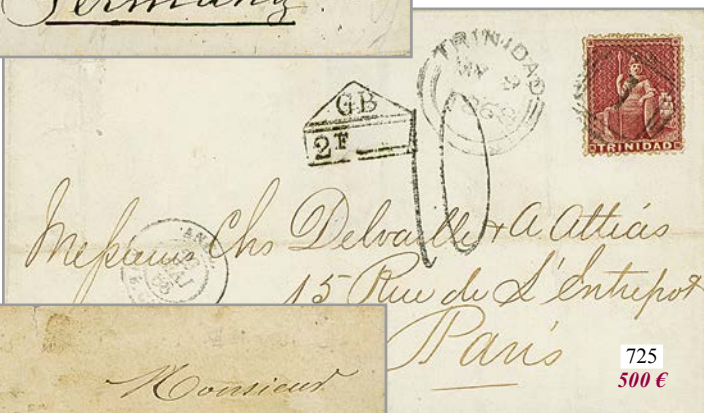 Germany.
TRINIDAD
GB
2F
10
TRINIDAD
Messieurs Chs Delvaille & A. Attias
15 Rue de L'Entrepot
Paris
Monsieur
725
500 €